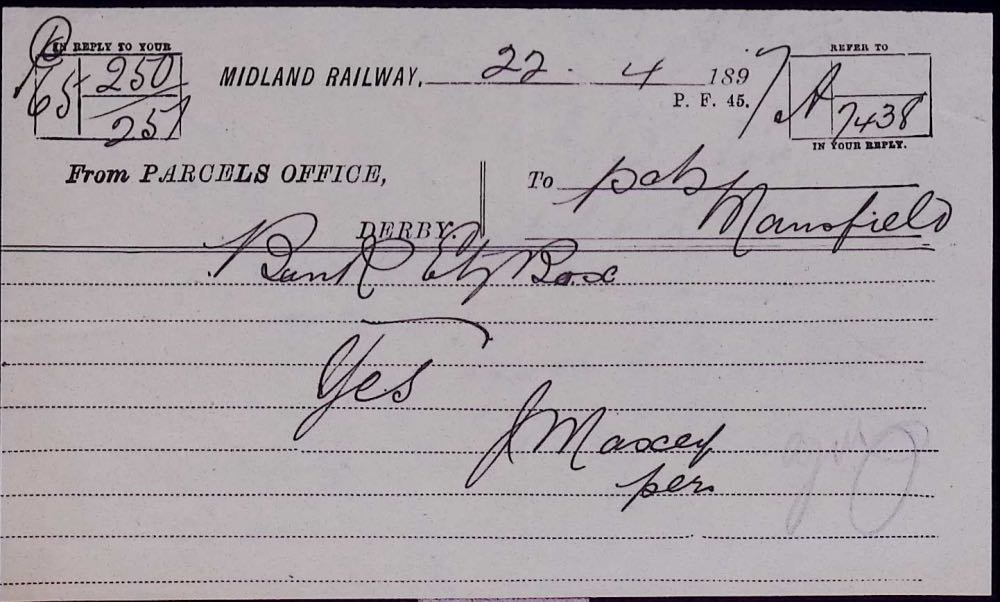 IN REPLY TO YOUR
65 250
251
MIDLAND RAILWAY, 22 . 4 1897
P. F. 45.
REFER TO
A 7438
IN YOUR REPLY.
From PARCELS OFFICE,
DERBY.
To
Mansfield
Bank Ety Box
Yes
J Maxey
per